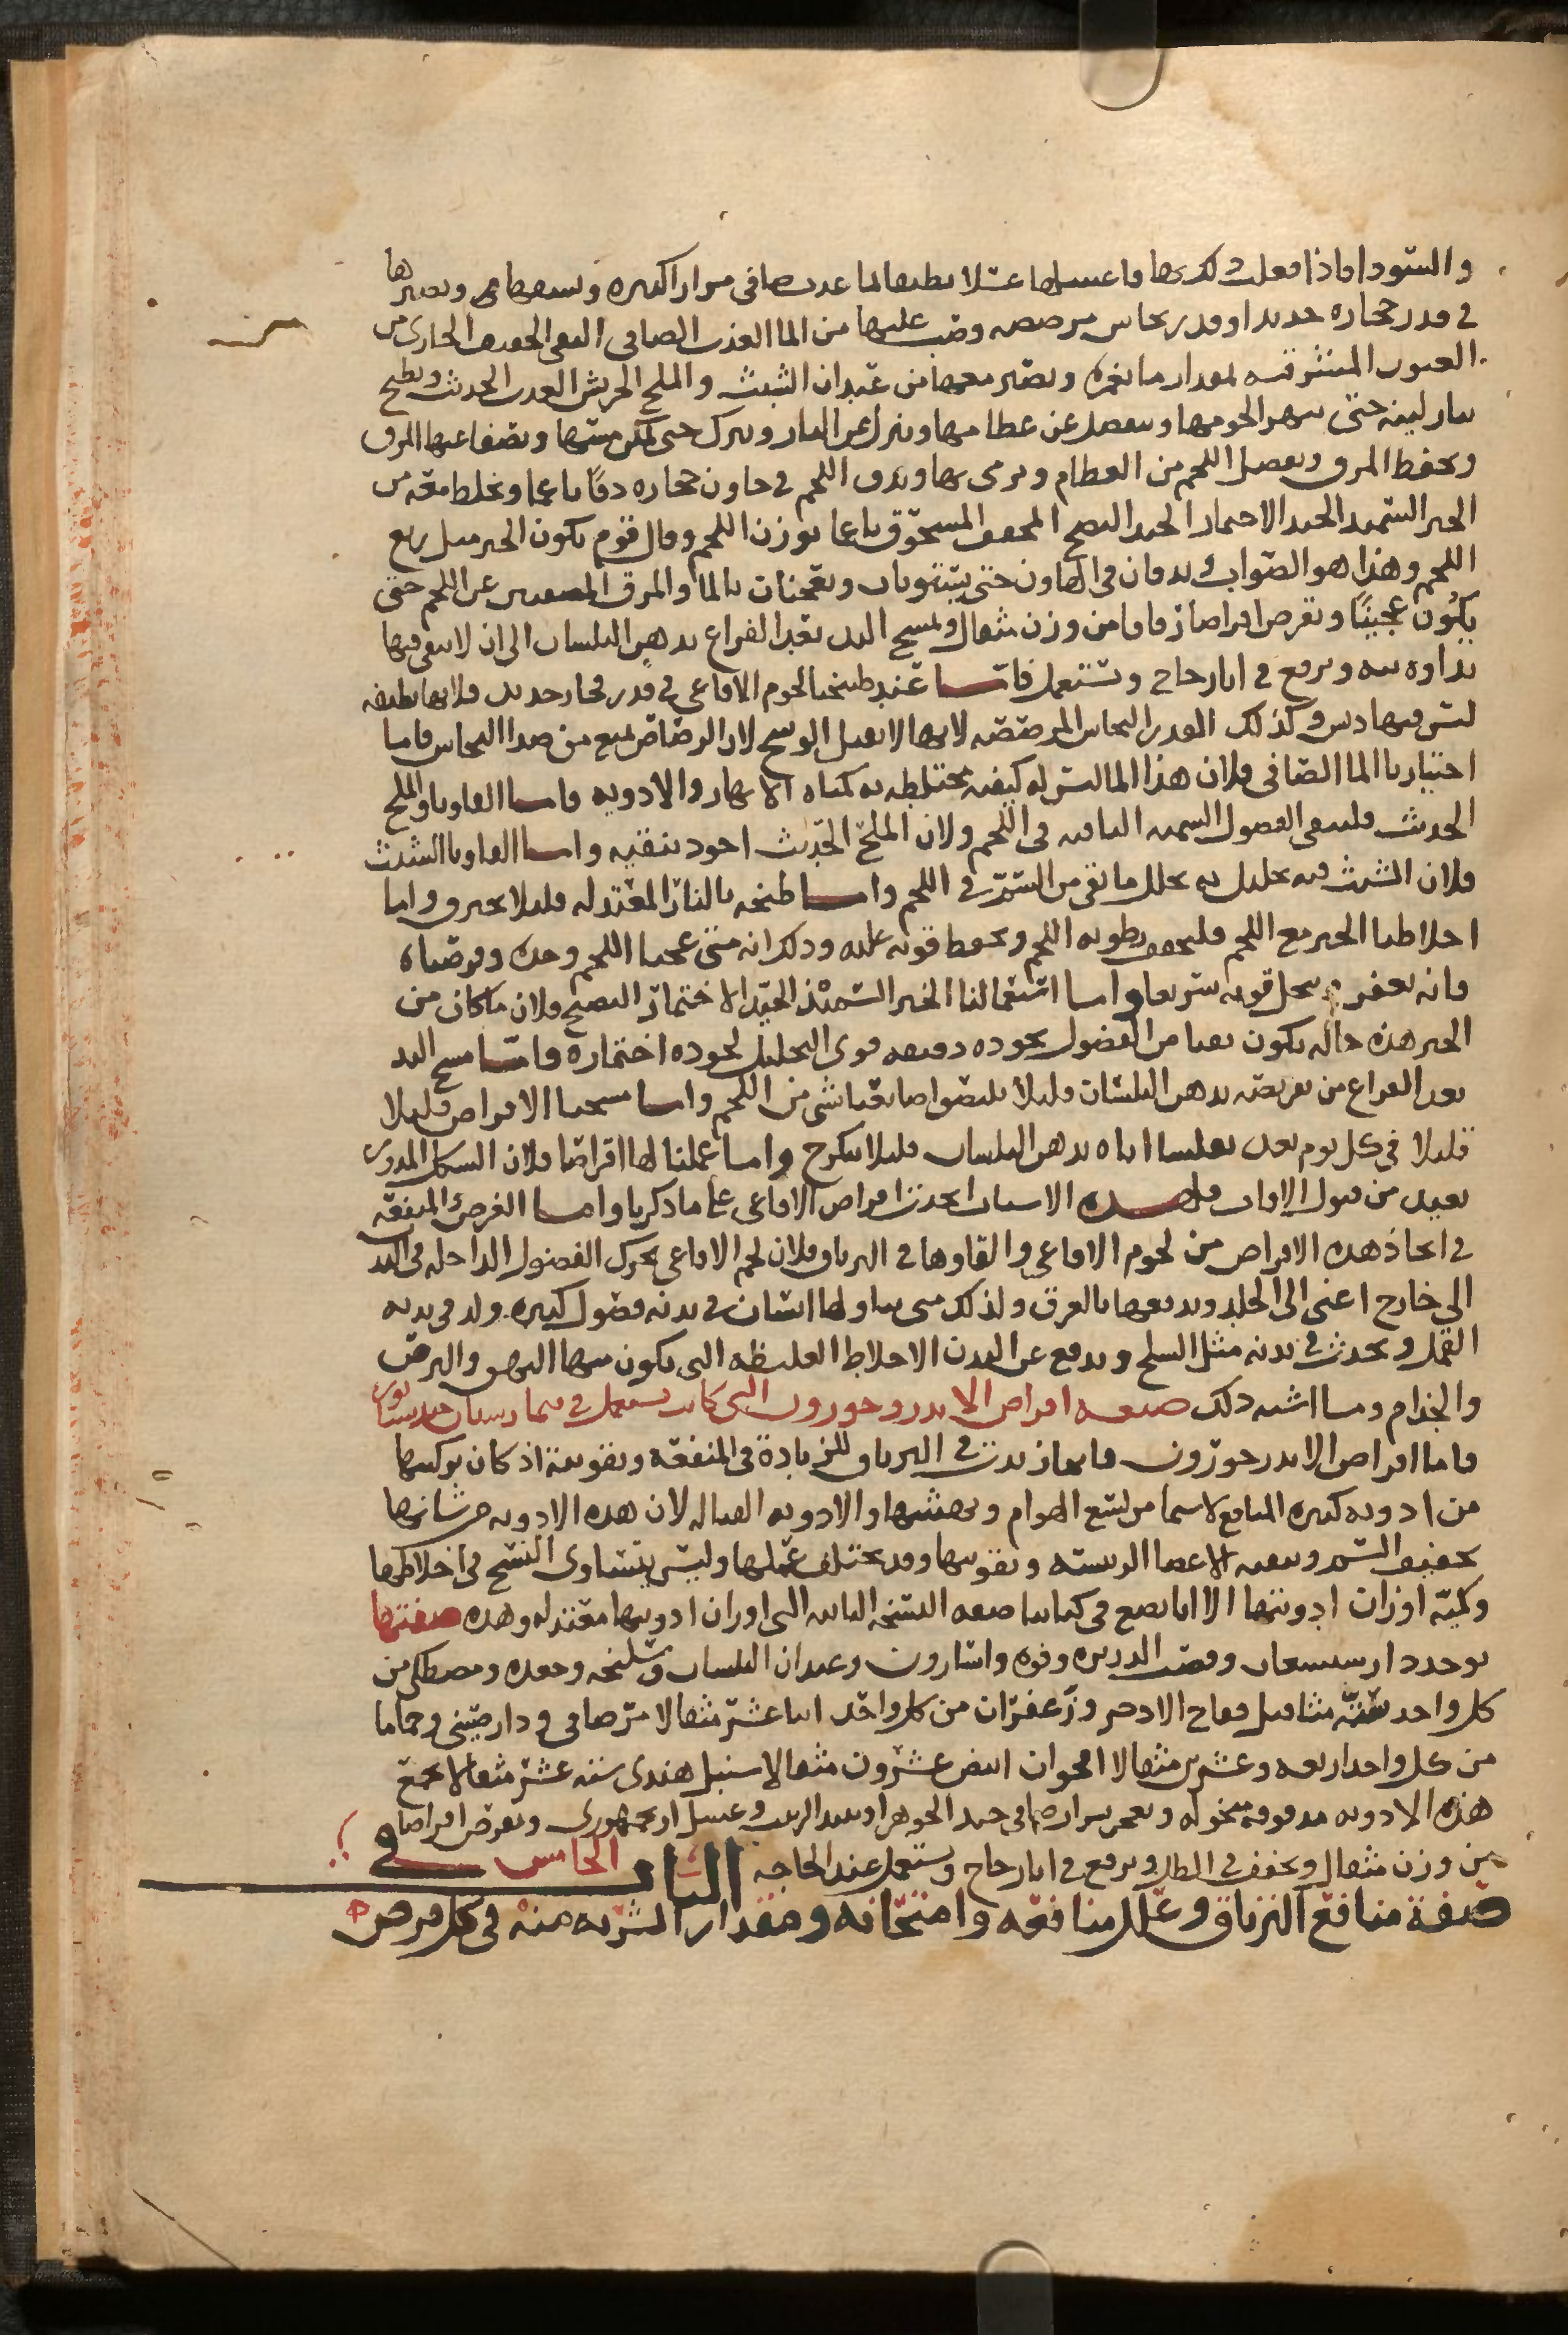 والسودا فاذا فعلت ذلك بها فاغسلها غسلا نظيفا بما عذب صافى مرارا كثيره وتصيرها
فى قدر فخاره جديد او قدر نحاس مرصصه وصب عليها من الما العذب الصافى النقى الخفيف الجارى من
العيون المشرقيه بمقدار ما يغمره ويصير معها من عيدان الشبث والملح الجريش العذب الحديث ويطبخ
بنار لينه حتى تتهرا لحومها وينفصل عن عظامها وينزل عن النار ويترك حتى يمكن مسها ويصفا عنها المرق
ويحفظ المرق ويفصل اللحم من العظام ويرمى بها ويدق اللحم فى هاون حجاره دقا ناعما ويخلط معه من
الخبز السميد الجيد الاختمار الجيد النضج المجفف المسحوق ناعما بوزن اللحم وقال قوم يكون الخبز مثل ربع
اللحم وهذا هو الصواب ويدقان فى الهاون حتى يستويان ويعجنان بالما والمرق المصفى عن اللحم حتى
يكون عجينا ويقرص اقراصا رقاقا من وزن مثقال ويمسح اليد بعد الفراغ بدهن البلسان الى ان لا يبقى فيها
نداوه بته ويرفع فى انا زجاج وتستعمل فاما عند طبخنا لحوم الافاعى فى قدر فخار جديد فلانها نظيفه
ليس فيها دسم وكذلك القدر النحاس المرصصه لانها لا تقبل الوسخ لان الرصاص يمنع من صدا النحاس فاما
اختيارنا الما الصافى فلان هذا الما ليس له كيفيه مختلطه به كمياه الانهار والادويه واما القاونا والملح
الحديث فلينقى الفضول السميه الباقيه فى اللحم ولان الملح الحديث اجود تنقيه واما القاونا الشبث
فلان الشبث فيه تحليل به يحلل ما بقى من السم فى اللحم واما طبخه بالنار المعتدله فليلا يحترق واما
اخلاطنا الخبز مع اللحم فليجفف رطوبه اللحم ويحفظ قوته عليه وذلك انه متى عجنا اللحم وحده وقرصناه
فانه يعفن وتنحل قوته سريعا واما استعمالنا الخبز السميذ الجيد الاختمار النضيج فلان ما كان من
الخبز هذه حاله يكون نقيا من الفضول بجوده دقيقه قوى التحليل لجوده اختماره فاما مسح اليد
بعد الفراغ من تقريصه بدهن البلسان فليلا يلتصق باصابعنا شى من اللحم واما مسحنا الاقراص قليلا
قليلا فى كل يوم بعد تقليبنا اياه بدهن البلسان فليلا يتكرج واما عملنا لها اقراصا فلان الشكل المدور
بعيد من قبول الافات فلهذه الاسباب اتخذت اقراص الافاعى على ما ذكرنا واما الغرض والمنفعه
فى اتخاذ هذه الاقراص من لحوم الافاعى والقاوها فى الترياق فلان لحم الافاعى يحرك الفضول الداخله فى البدن
الى خارج اعنى الى الجلد ويدفعها بالعرق ولذلك متى تناولها انسان فى بدنه فضول كثيره ولد فى بدنه
القمل ويحدث فى بدنه مثل السلخ ويدفع عن البدن الاخلاط الغليظه التى يكون منها البهق والبرص
والجذام وما اشبه ذلك صفه اقراص الاندروخورون التى كانت تستعمل فى بيمارستان جنديسابور
فاما اقراص الاندرخورون فانها زيدت فى الترياق للزياده فى المنفعه وتقويته اذ كان تركيبها
من ادويه كثيره المنافع لا سيما من لسع الهوام ونهشها والادويه القتاله لان هذه الادويه من شانها
تجفيف السم وتنقيه الاعضا الرييسه وتقويتها وقد يختلف عملها وليس يتساوى النسخ فى اخلاطها
وكميه اوزان ادويتها الا انا نضع فى كتابنا صفه النسخه التى اوزان ادويتها معتدله وهذه صفتها
يوخذ دارسيسعان وقصب الذريره وفوه واسارون وعيدان البلسان وسليخه وحمده ومصطكى من
كل واحد سته مثاقيل فقاح الاذخر وزعفران من كل واحد اثنا عشر مثقالا مر صافى ودارصينى وحماما
من كل واحد اربعه وعشرين مثقالا اقحوان ابيض عشرون مثقالا سنبل هندى سته عشر مثقالا تجمع
هذه الادويه مدقوقه منخوله وتعجن بشراب صافى جيد الجوهر او نبيذ الزبيب وعسل او جمهورى وتقرص اقراصا
من وزن مثقال ويجفف فى الظل ويرفع فى انا زجاج ويستعمل عند الحاجه الباب الخامس فى
صفة منافع الترياق وعلل منافعه وامتحانه ومقدار الشربه منه فى كل مرض